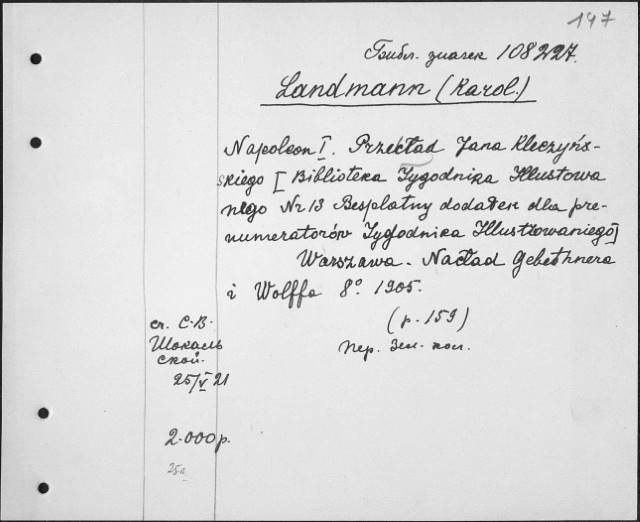 197
Библ. значек 108227.
Landmann (Karol.)
Napoleon I. Przekład Jana Kleczyńs-
skiego [Biblioteka Tygodnika Illustowa
nego Nr 13 Bespłatny dodatek dla pre-
numeratorów Tygodnika Illustrowaniego]
Warszawa. Nacład Gebethnera
i Wolffa 8° 1905.
(p. 159)
Пер. Зел. кол.
ст. С.В.
Шокаль
ской.
25/V 21
2.000 р.